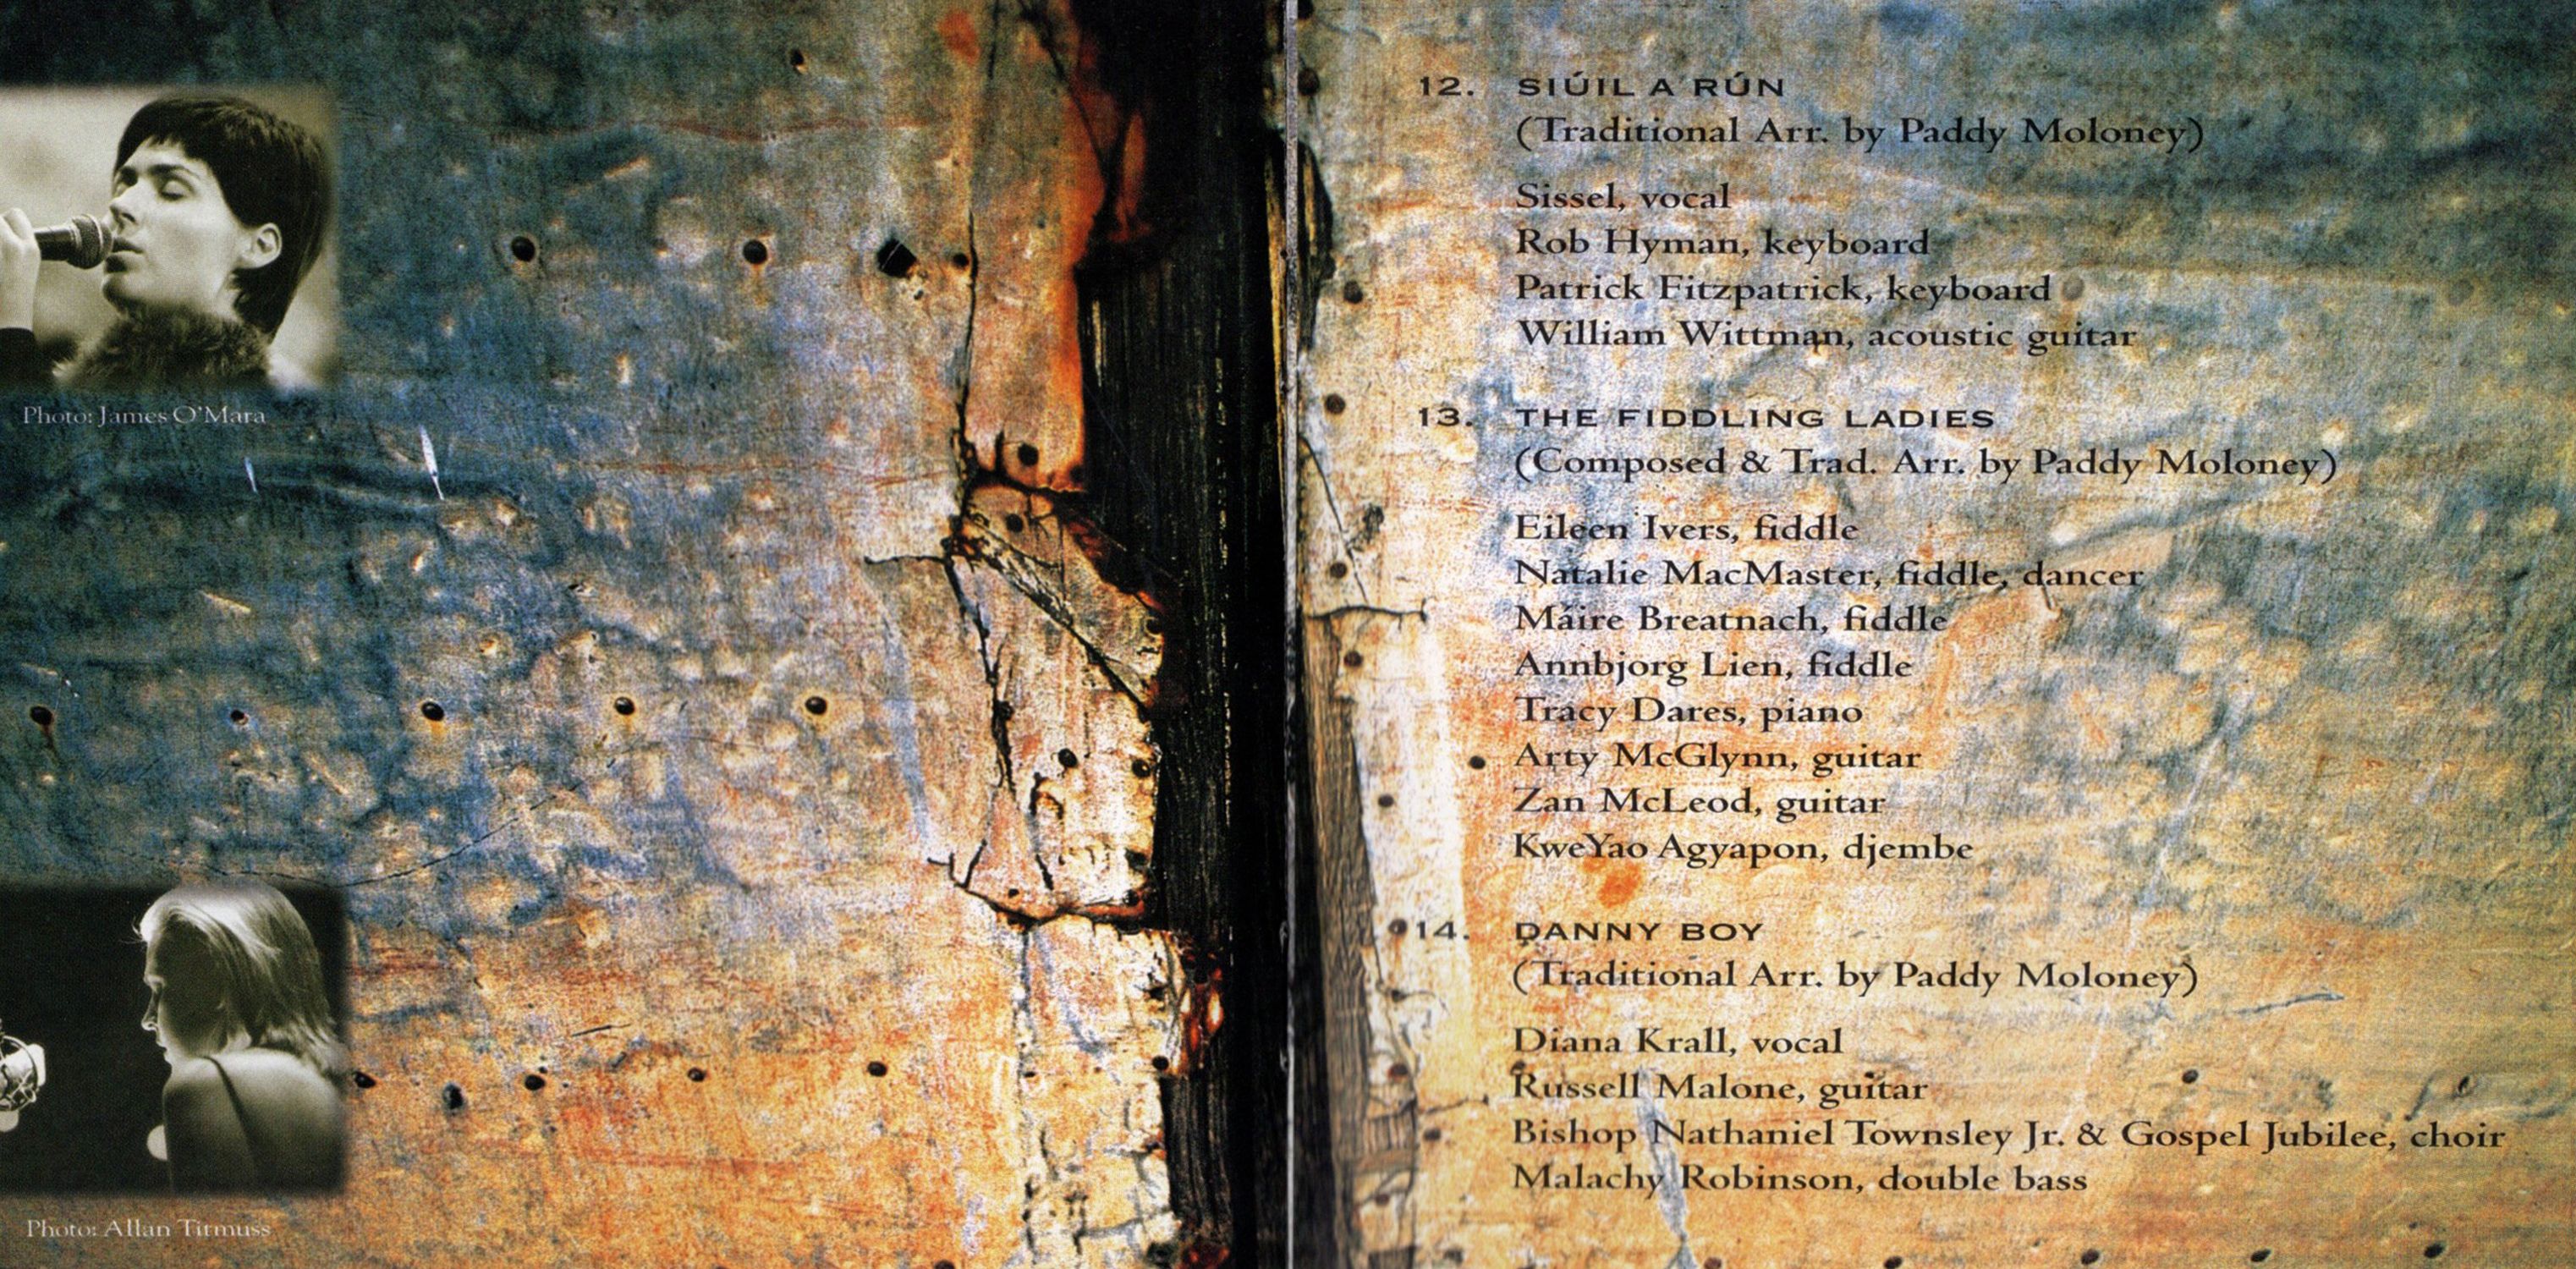 Photo: James O'Mara
Photo: Allan Titmuss
12. SIÚIL A RÚN
(Traditional Arr. by Paddy Moloney)
Sissel, vocal
Rob Hyman, keyboard
Patrick Fitzpatrick, keyboard
William Wittman, acoustic guitar
13. THE FIDDLING LADIES
(Composed & Trad. Arr. by Paddy Moloney)
Eileen Ivers, fiddle
Natalie MacMaster, fiddle, dancer
Máire Breatnach, fiddle
Annbjorg Lien, fiddle
Tracy Dares, piano
Arty McGlynn, guitar
Zan McLeod, guitar
KweYao Agyapon, djembe
14. DANNY BOY
(Traditional Arr. by Paddy Moloney)
Diana Krall, vocal
Russell Malone, guitar
Bishop Nathaniel Townsley Jr. & Gospel Jubilee, choir
Malachy Robinson, double bass